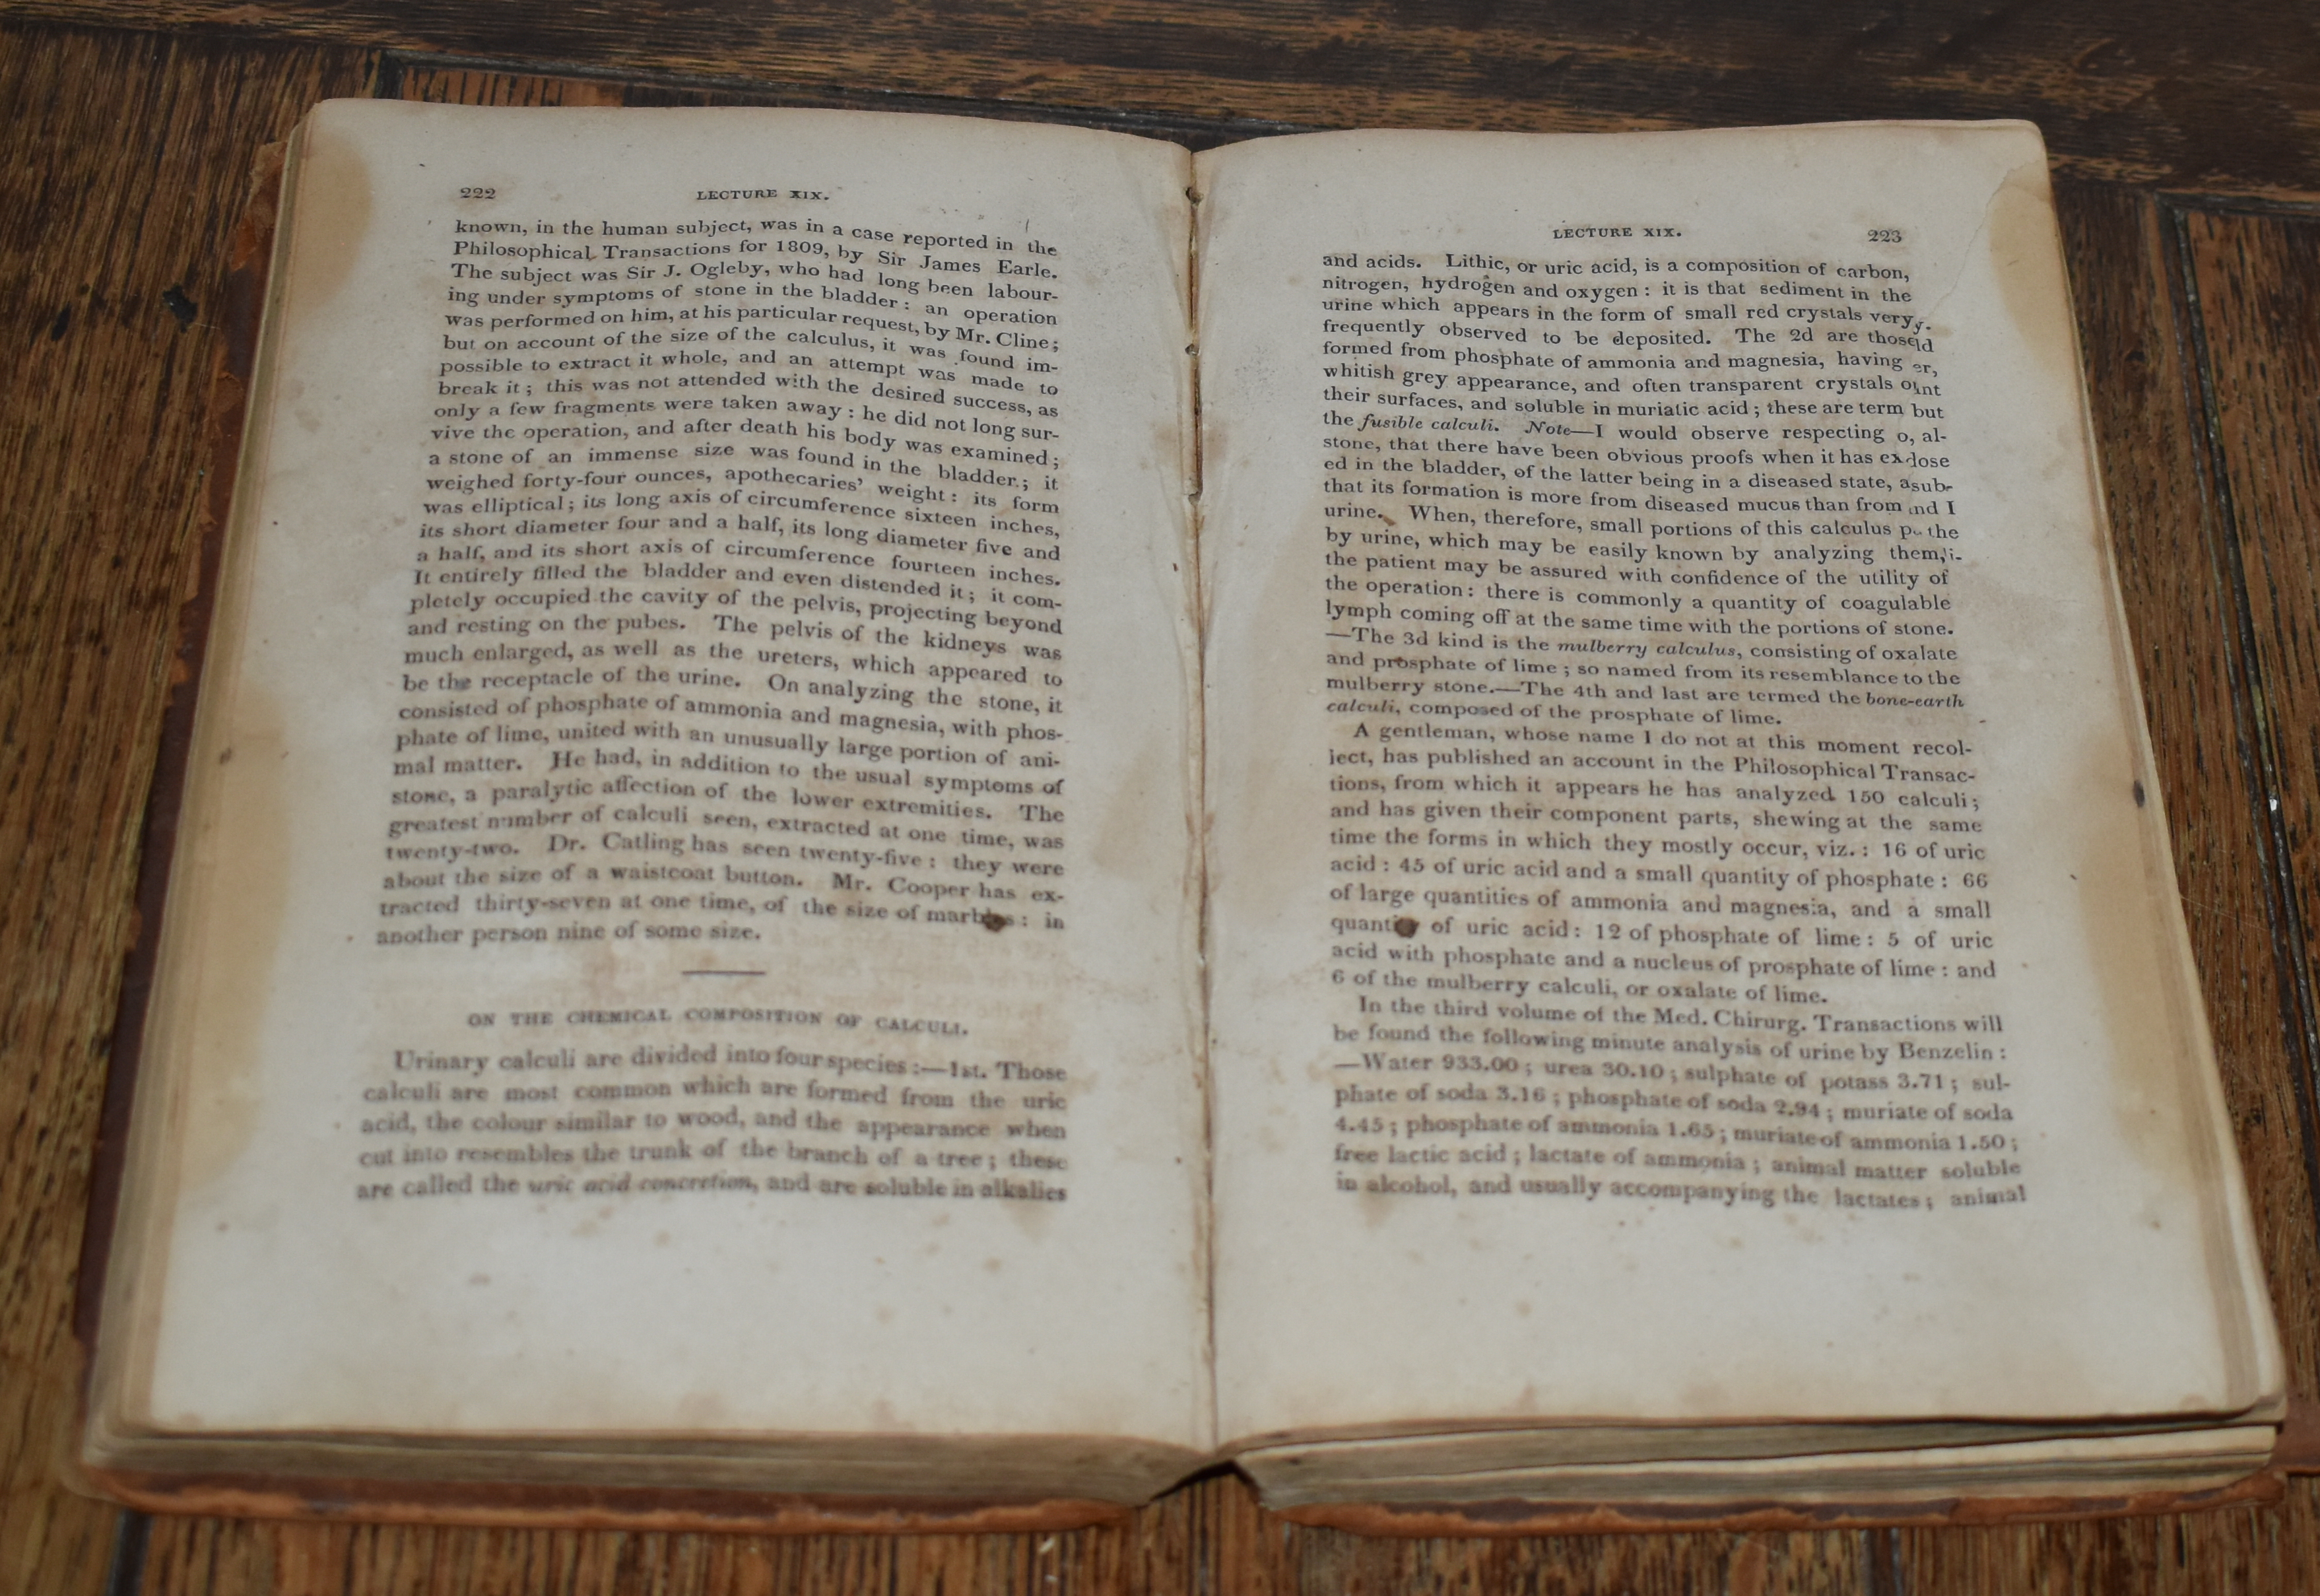 222 LECTURE XIX.
known, in the human subject, was in a case reported in the
Philosophical Transactions for 1809, by Sir James Earle.
The subject was Sir J. Ogleby, who had long been labour-
ing under symptoms of stone in the bladder: an operation
was performed on him, at his particular request, by Mr. Cline;
but on account of the size of the calculus, it was found im-
possible to extract it whole, and an attempt was made to
break it; this was not attended with the desired success, as
only a few fragments were taken away: he did not long sur-
vive the operation, and after death his body was examined;
a stone of an immense size was found in the bladder; it
weighed forty-four ounces, apothecaries' weight: its form
was elliptical; its long axis of circumference sixteen inches,
its short diameter four and a half, its long diameter five and
a half, and its short axis of circumference fourteen inches.
It entirely filled the bladder and even distended it; it com-
pletely occupied the cavity of the pelvis, projecting beyond
and resting on the pubes. The pelvis of the kidneys was
much enlarged, as well as the ureters, which appeared to
be the receptacle of the urine. On analyzing the stone, it
consisted of phosphate of ammonia and magnesia, with phos-
phate of lime, united with an unusually large portion of ani-
mal matter. He had, in addition to the usual symptoms of
stone, a paralytic affection of the lower extremities. The
greatest number of calculi seen, extracted at one time, was
twenty-two. Dr. Catling has seen twenty-five: they were
about the size of a waistcoat button. Mr. Cooper has ex-
tracted thirty-seven at one time, of the size of marbles: in
another person nine of some size.
ON THE CHEMICAL COMPOSITION OF CALCULI.
Urinary calculi are divided into four species:—1st. Those
calculi are most common which are formed from the uric
acid, the colour similar to wood, and the appearance when
cut into resembles the trunk of the branch of a tree; these
are called the uric acid concretion, and are soluble in alkalies
LECTURE XIX. 223
and acids. Lithic, or uric acid, is a composition of carbon,
nitrogen, hydrogen and oxygen: it is that sediment in the
urine which appears in the form of small red crystals very
frequently observed to be deposited. The 2d are those
formed from phosphate of ammonia and magnesia, having
whitish grey appearance, and often transparent crystals
their surfaces, and soluble in muriatic acid; these are term but
the fusible calculi. Note—I would observe respecting o, al-
stone, that there have been obvious proofs when it has
ed in the bladder, of the latter being in a diseased state,
that its formation is more from diseased mucus than from nd I
urine. When, therefore, small portions of this calculus the
by urine, which may be easily known by analyzing them,
the patient may be assured with confidence of the utility of
the operation: there is commonly a quantity of coagulable
lymph coming off at the same time with the portions of stone.
—The 3d kind is the mulberry calculus, consisting of oxalate
and prosphate of lime; so named from its resemblance to the
mulberry stone.—The 4th and last are termed the bone-earth
calculi, composed of the prosphate of lime.
A gentleman, whose name I do not at this moment recol-
lect, has published an account in the Philosophical Transac-
tions, from which it appears he has analyzed 150 calculi;
and has given their component parts, shewing at the same
time the forms in which they mostly occur, viz.: 16 of uric
acid: 45 of uric acid and a small quantity of phosphate: 66
of large quantities of ammonia and magnesia, and a small
quantity of uric acid: 12 of phosphate of lime: 5 of uric
acid with phosphate and a nucleus of prosphate of lime: and
6 of the mulberry calculi, or oxalate of lime.
In the third volume of the Med. Chirurg. Transactions will
be found the following minute analysis of urine by Benzelin:
—Water 933.00; urea 30.10; sulphate of potass 3.71; sul-
phate of soda 3.16; phosphate of soda 2.94; muriate of soda
4.45; phosphate of ammonia 1.65; muriate of ammonia 1.50;
free lactic acid; lactate of ammonia; animal matter soluble
in alcohol, and usually accompanying the lactates; animal